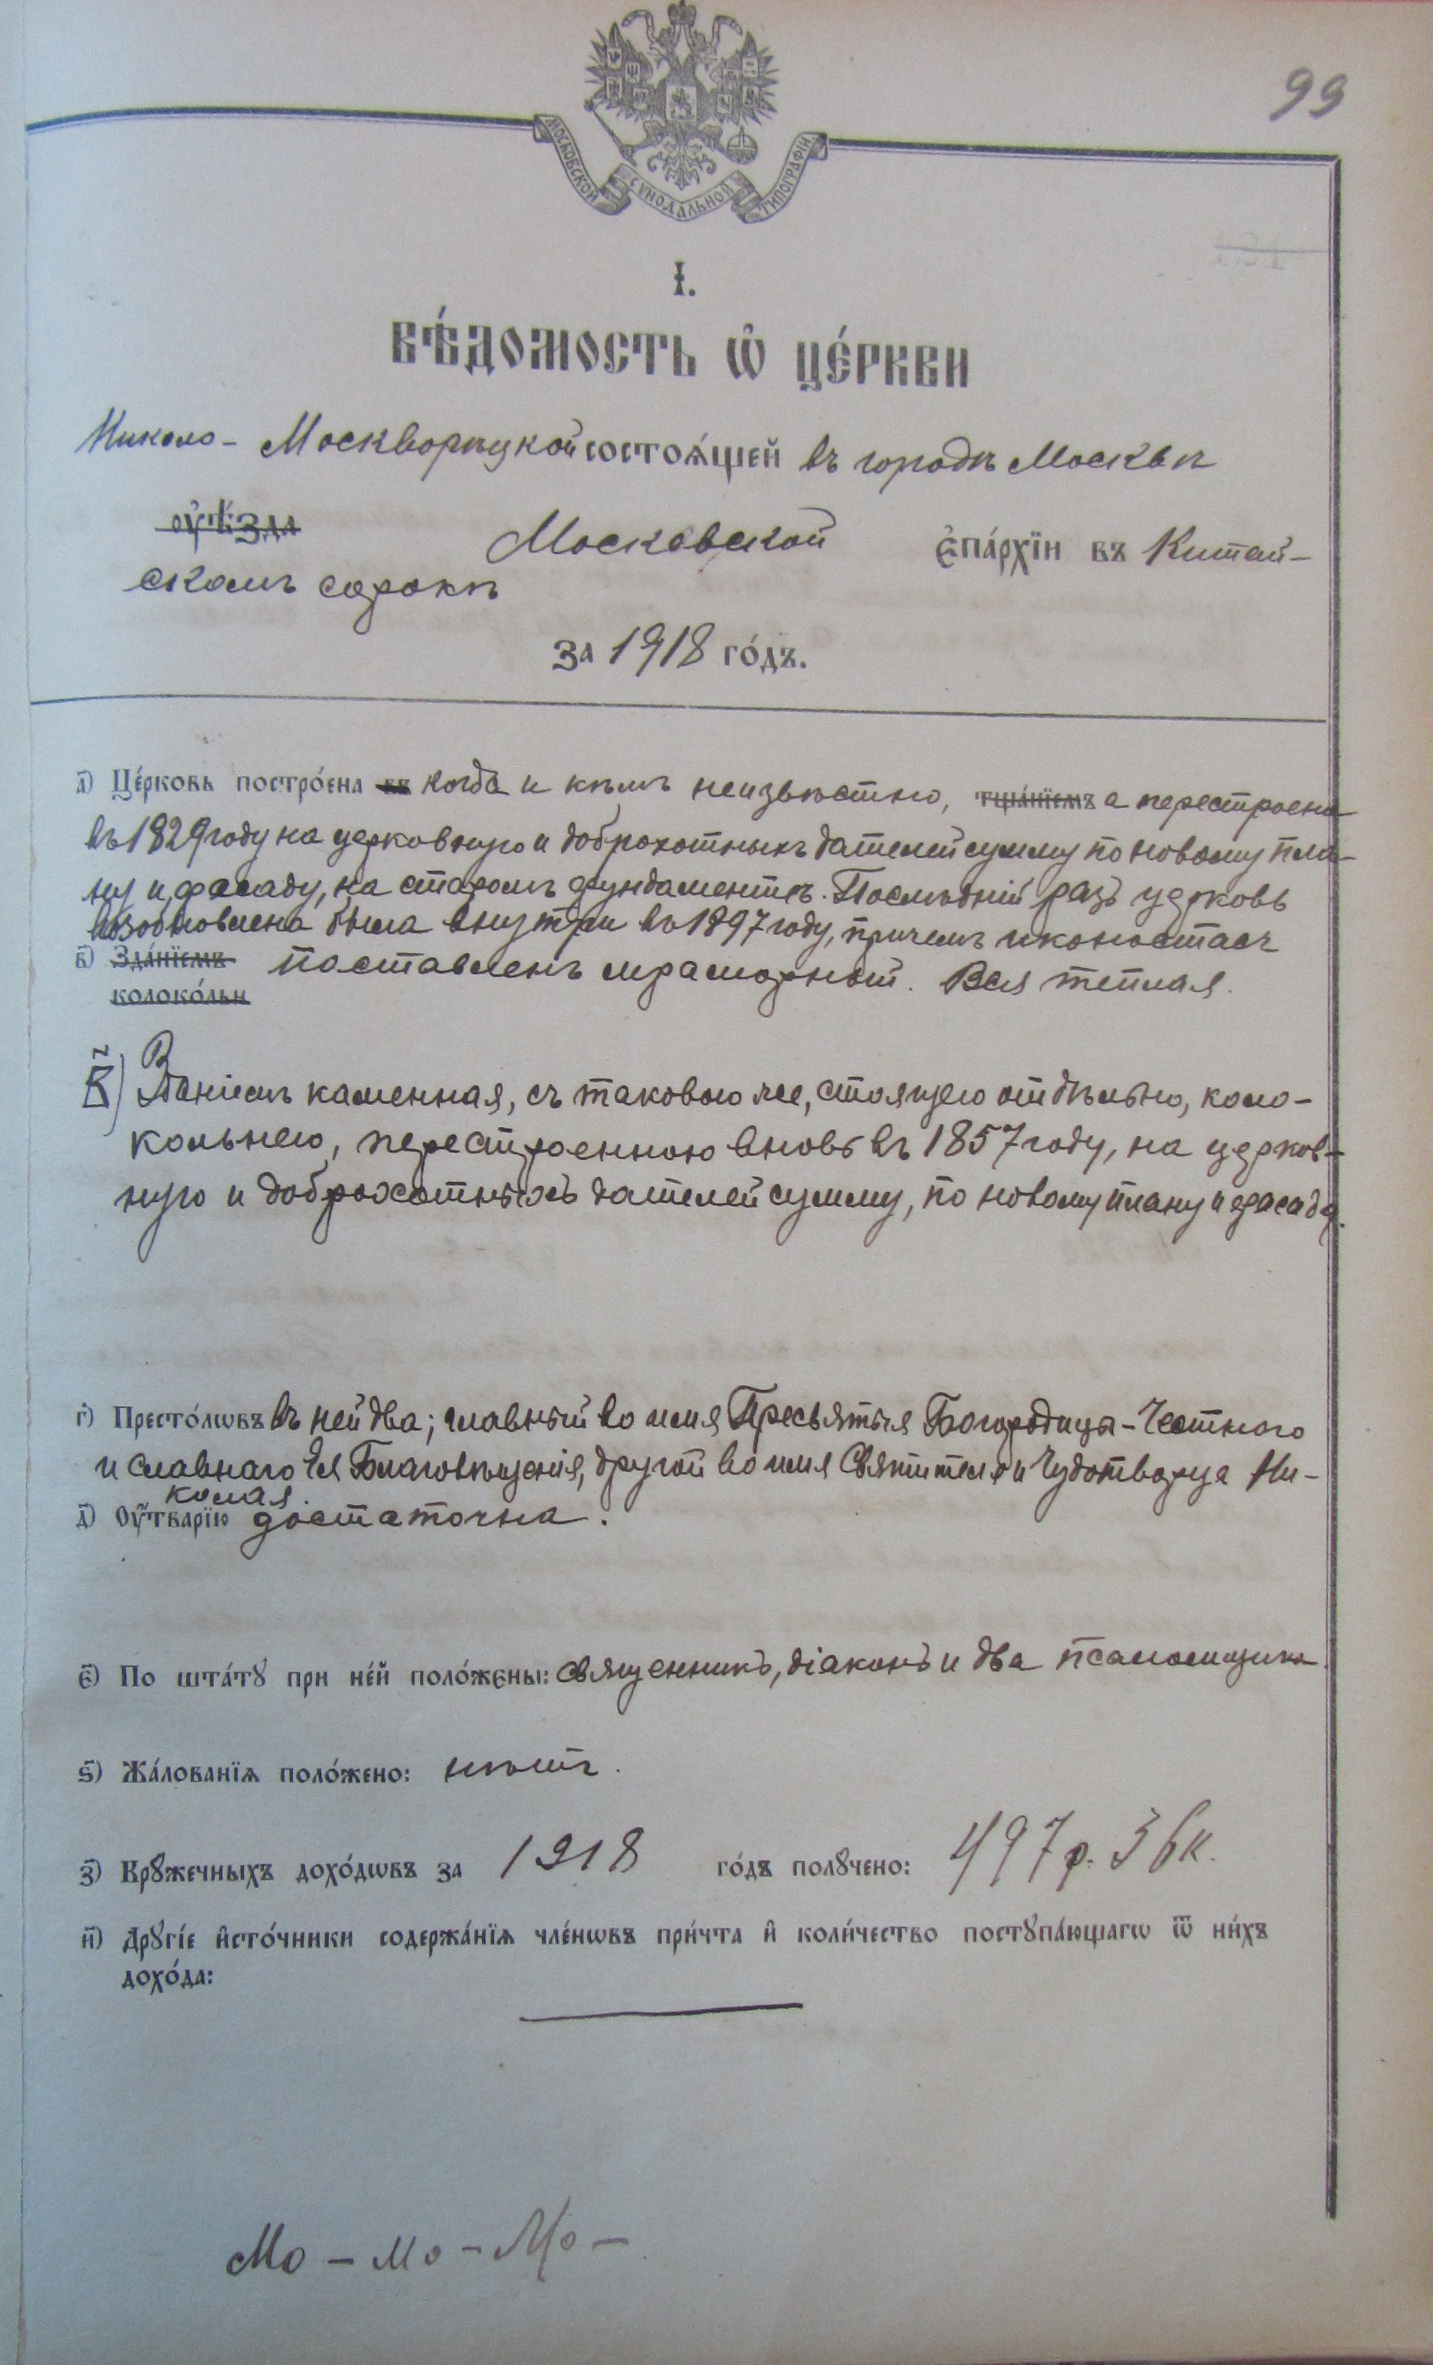 99
МОСКОВСКОЙ СѴНОДАЛЬНОЙ ТИПОГРАФІИ
І.
ВѢ́ДОМОСТЬ Ѡ҆ ЦЕ́РКВИ
Николо - Москворѣцкой состоѧ́щей въ городѣ Москвѣ
оу҆ѣ́зда Московской є҆па́рхїи въ Китай-
скомъ сорокѣ
за 1918 го́дъ.
а҃) Це́рковь постро́ена въ когда и кѣмъ неизвѣстно, тща́нїемъ а перестроена
въ 1829 году на церковную и доброхотныхъ дателей сумму по новому пла-
ну и фасаду, на старомъ фундаментѣ. Послѣдній разъ церковь
возобновлена была внутри въ 1897 году, причемъ иконостасъ
в҃) Зда́нїемъ поставленъ мраморный. Вся теплая.
колоко́льн
в҃) Зданіемъ каменная, съ таковою же, стоящею отдѣльно, коло-
кольнею, перестроенною вновь въ 1857 году, на церков-
ную и доброхотныхъ дателей сумму, по новому плану и фасаду.
г҃) Престо́лѡвъ въ ней два; главный во имя Пресвятыя Богородицы - Честнаго
и славнаго Ея Благовѣщенія, другой во имя Святителя и Чудотворца Ни-
колая.
д҃) Оу҆́тварїю достаточна.
є҃) По шта́тꙋ при не́й поло́жены: священникъ, діаконъ и два псаломщика
ѕ҃) Жа́лованїѧ поло́жено: нѣтъ.
з҃) Крꙋжечныхъ дохо́дѡвъ за 1918 го́дъ полꙋчено: 497 р. 36 к.
и҃) Дрꙋгі́е и҆сто́чники содержа́нїѧ чле́нѡвъ при́чта и҆ коли́чество постꙋпа́ющагѡ ѿ ни́хъ
дохо́да:
Мо - Мо - Мо -